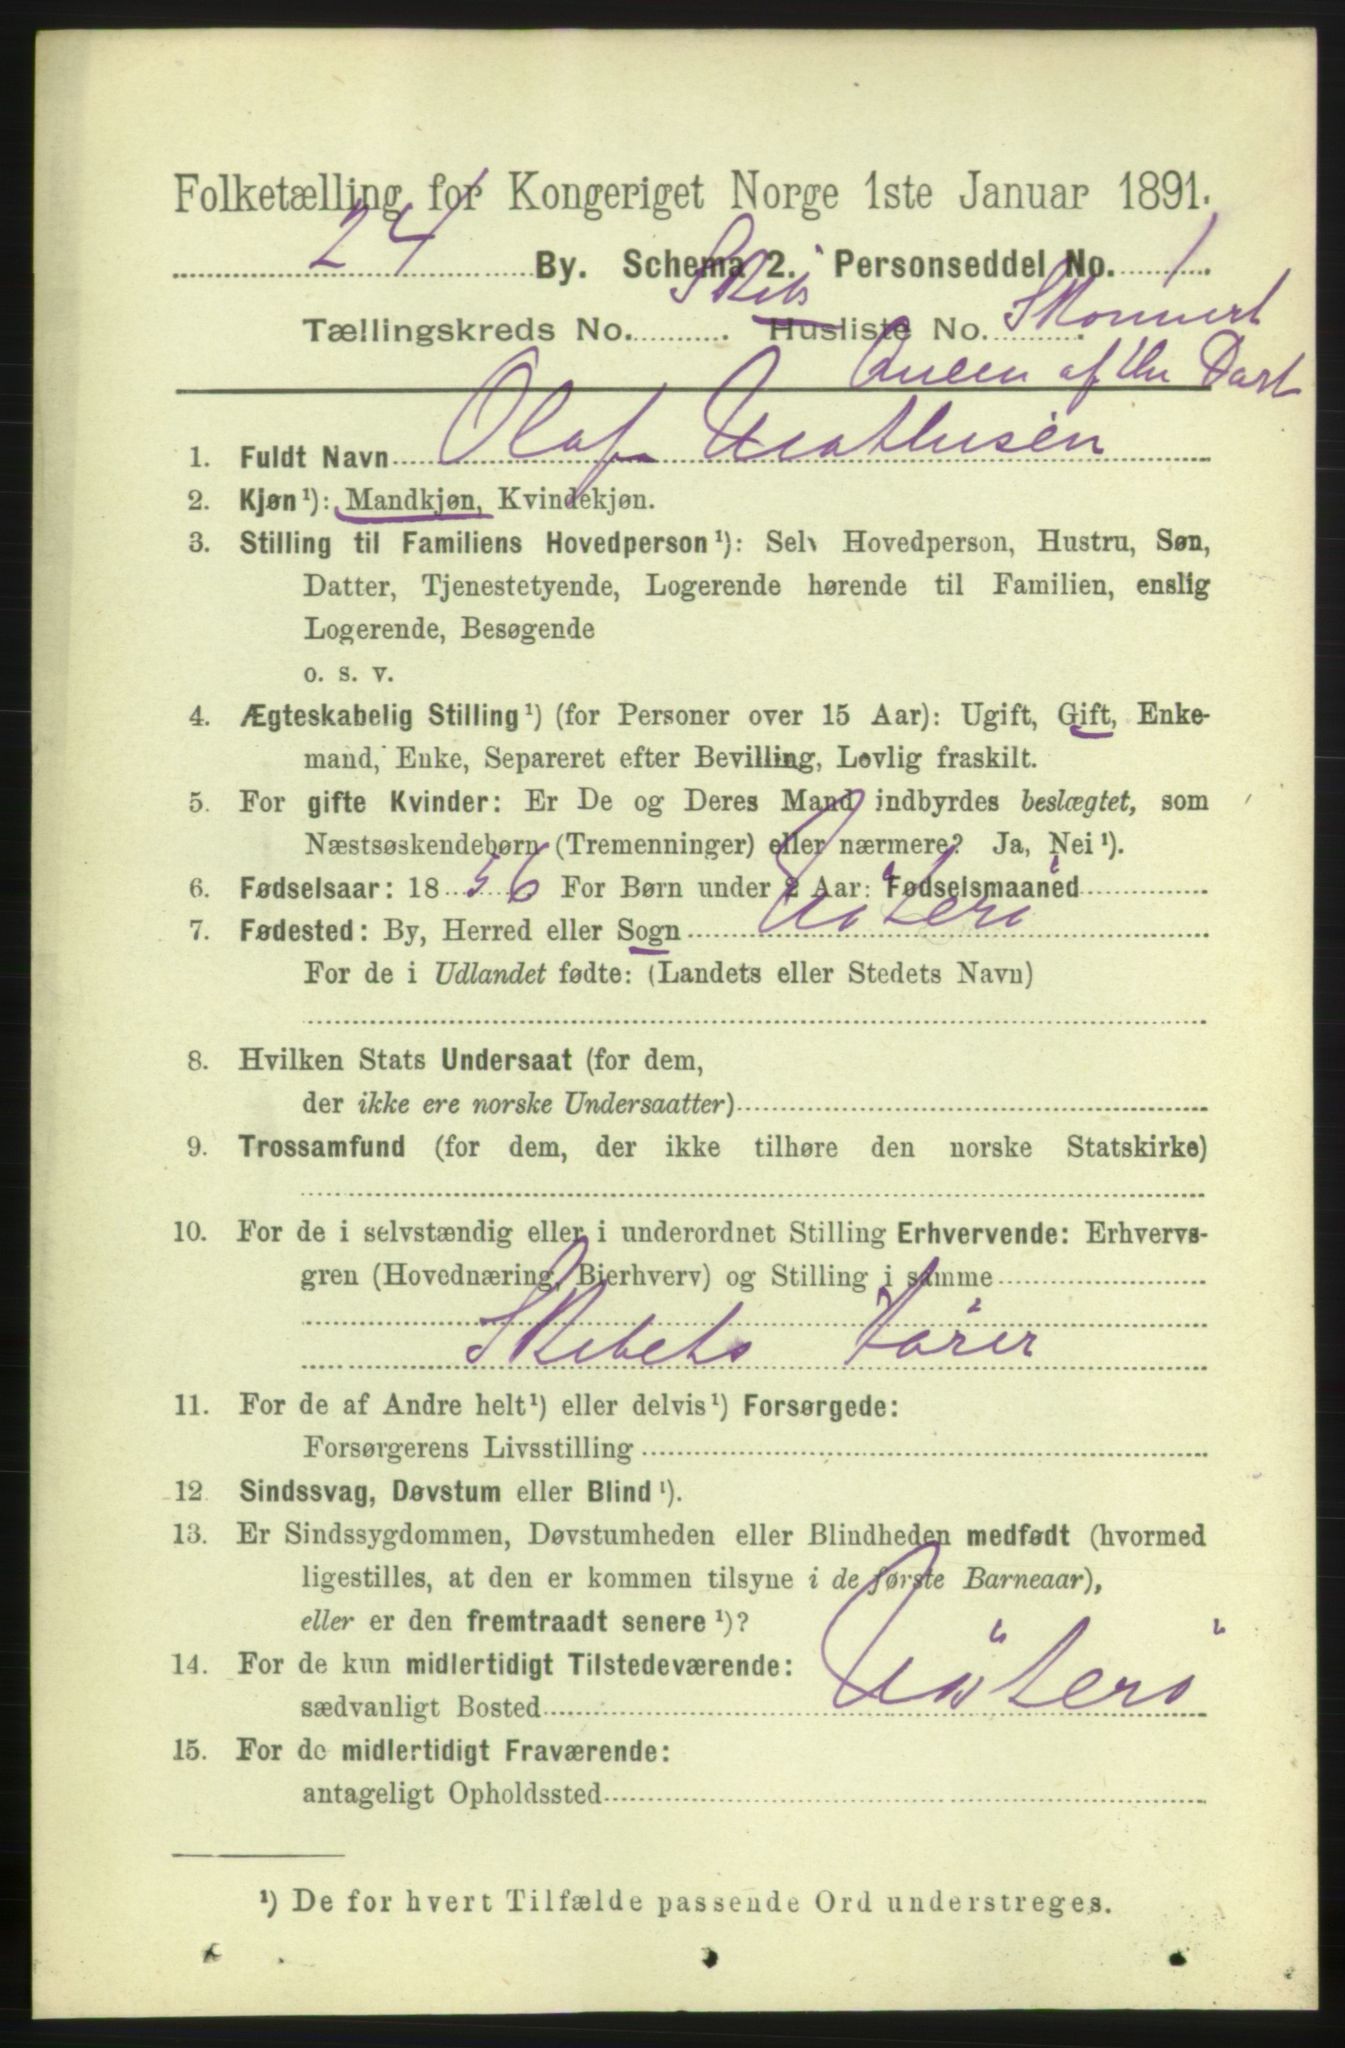 Folketælling for Kongeriget Norge 1ste Januar 1891.
24 By. Schema 2. Personseddel No. 1
Tællingskreds No. Skibs Husliste No. Skonnert
Queen of the Dart
1. Fuldt Navn Olaf Mathisen
2. Kjøn ¹): Mandkjøn, Kvindekjøn.
3. Stilling til Familiens Hovedperson ¹): Selv Hovedperson, Hustru, Søn,
Datter, Tjenestetyende, Logerende hørende til Familien, enslig
Logerende, Besøgende
o. s. v.
4. Ægteskabelig Stilling ¹) (for Personer over 15 Aar): Ugift, Gift, Enke-
mand, Enke, Separeret efter Bevilling, Lovlig fraskilt.
5. For gifte Kvinder: Er De og Deres Mand indbyrdes beslægtet, som
Næstsøskendebørn (Tremenninger) eller nærmere? Ja, Nei ¹).
6. Fødselsaar: 1856 For Børn under 2 Aar: Fødselsmaaned
7. Fødested: By, Herred eller Sogn Nöterö
For de i Udlandet fødte: (Landets eller Stedets Navn)
8. Hvilken Stats Undersaat (for dem,
der ikke ere norske Undersaatter)
9. Trossamfund (for dem, der ikke tilhøre den norske Statskirke)
10. For de i selvstændig eller i underordnet Stilling Erhvervende: Erhvervs-
gren (Hovednæring, Bierhverv) og Stilling i samme
Skibets Förer
11. For de af Andre helt ¹) eller delvis ¹) Forsørgede:
Forsørgerens Livsstilling
12. Sindssvag, Døvstum eller Blind ¹).
13. Er Sindssygdommen, Døvstumheden eller Blindheden medfødt (hvormed
ligestilles, at den er kommen tilsyne i de første Barneaar),
eller er den fremtraadt senere ¹)?
14. For de kun midlertidigt Tilstedeværende:
sædvanligt Bosted Nöterö
15. For de midlertidigt Fraværende:
antageligt Opholdssted
¹) De for hvert Tilfælde passende Ord understreges.